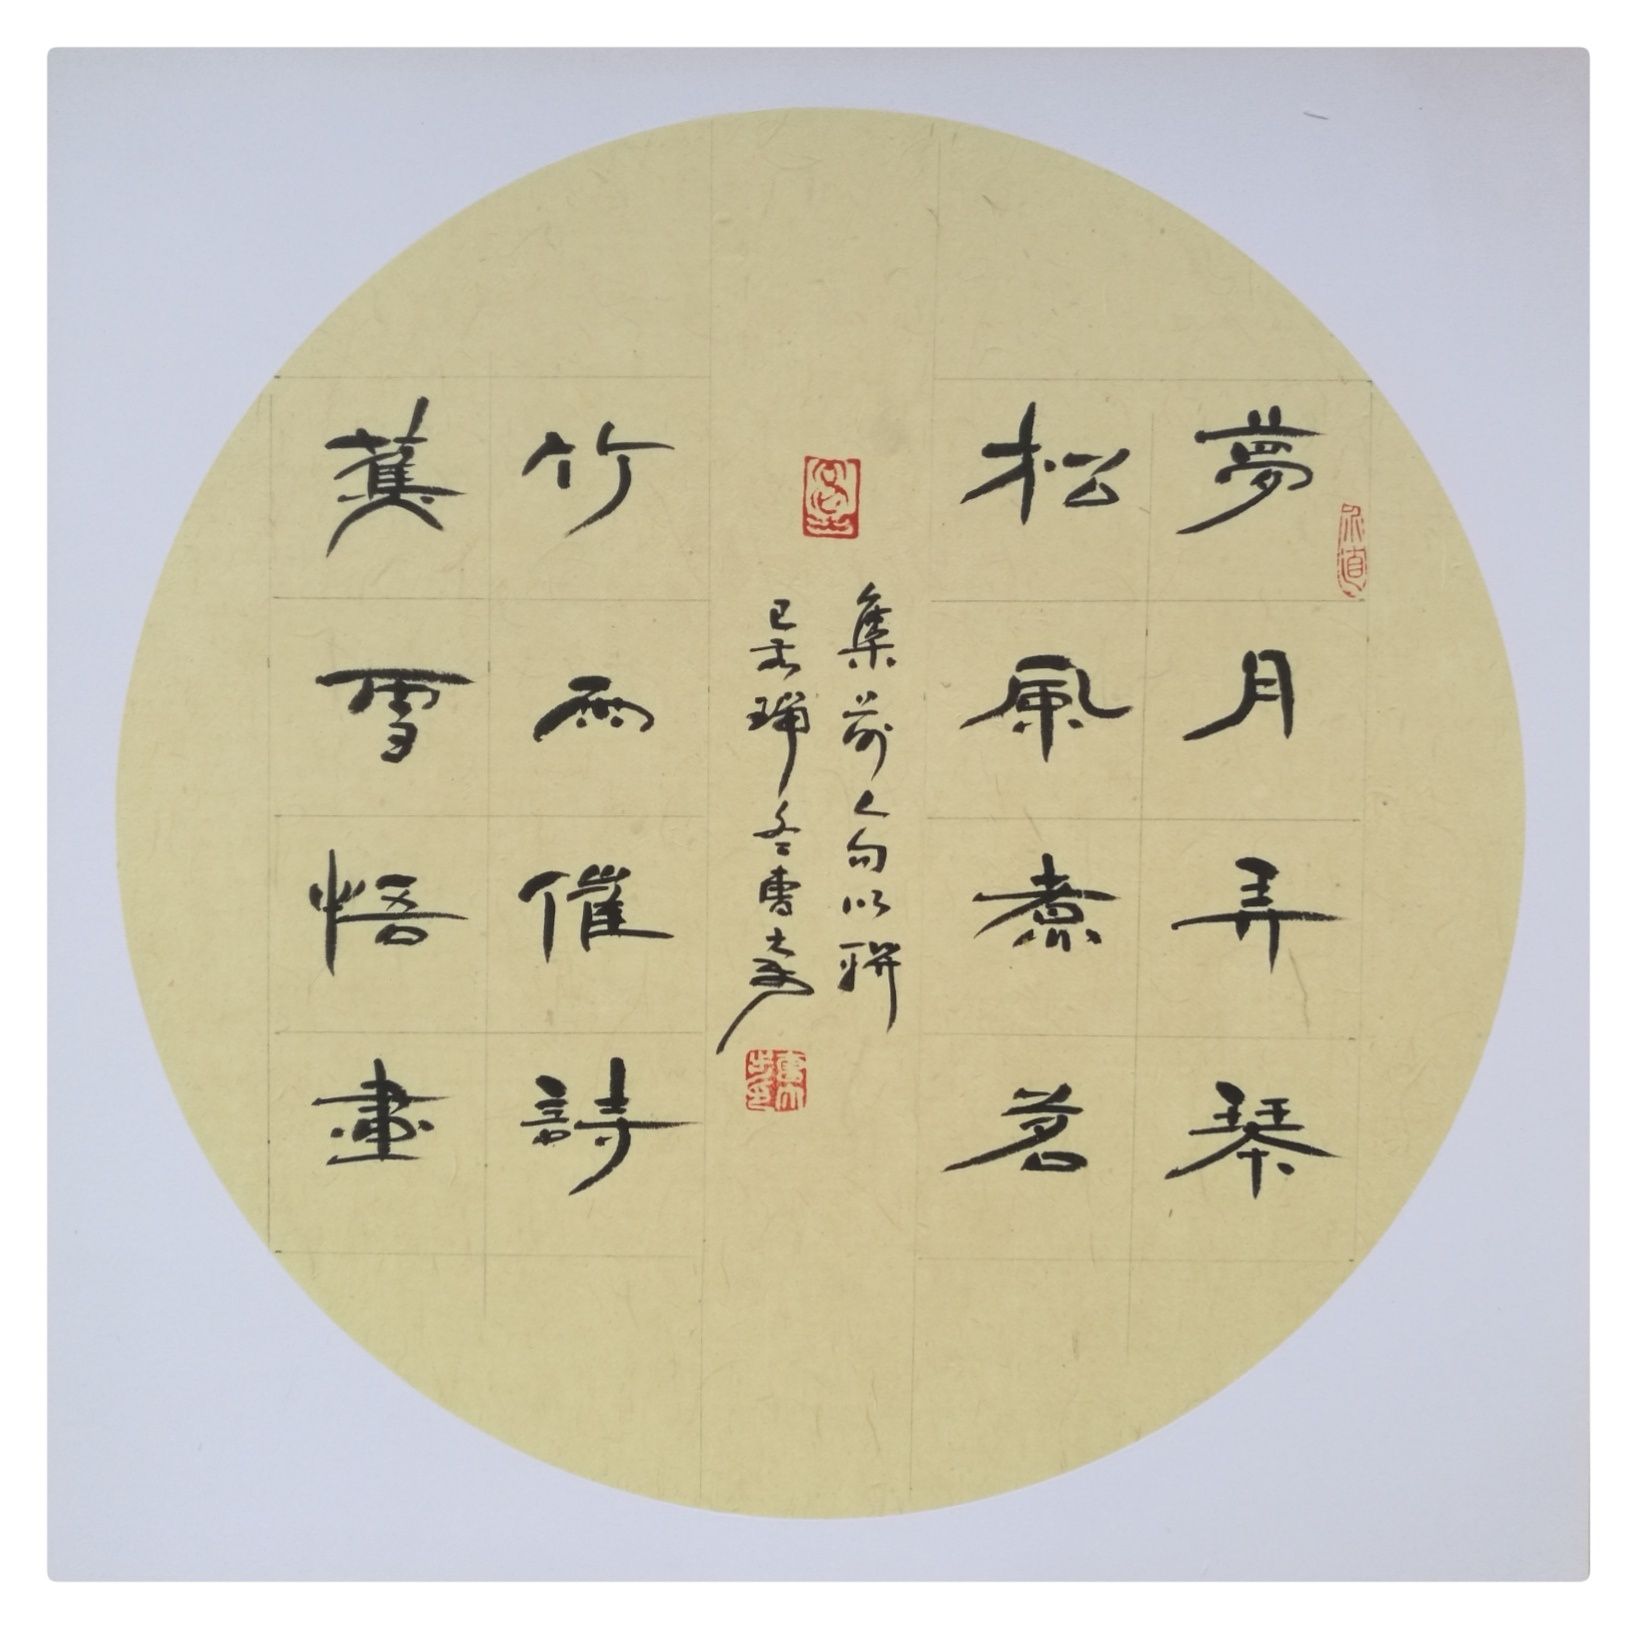 夢月弄琴
松風煮茗
集前人句以聯
己亥瑞冬曹
竹雨催詩
蕉雪悟畫